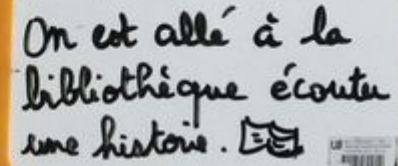 On est allé à la
bibliothèque écouter
une histoire.